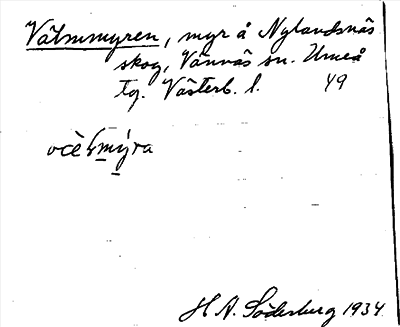 Vätmmyren, myr å Nylandsnäs
skog, Vännäs sn. Umeå
tg. Västerb. l. 49
H. A. Söderberg 1934